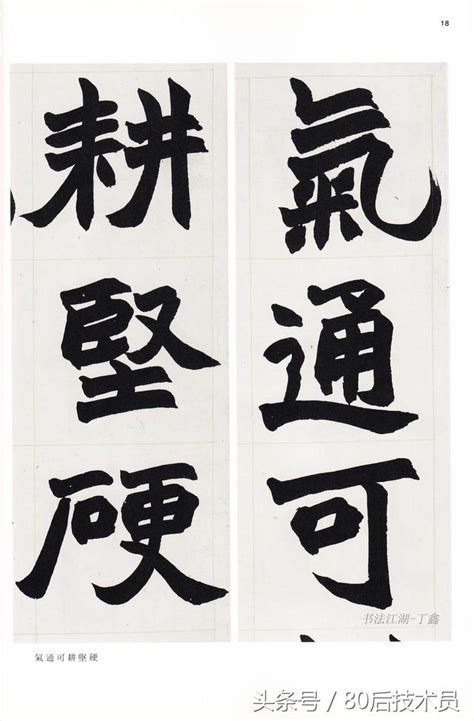 18
氣通可
耕堅硬
书法江湖-丁鑫
氣通可耕堅硬
头条号 / 80后技术员